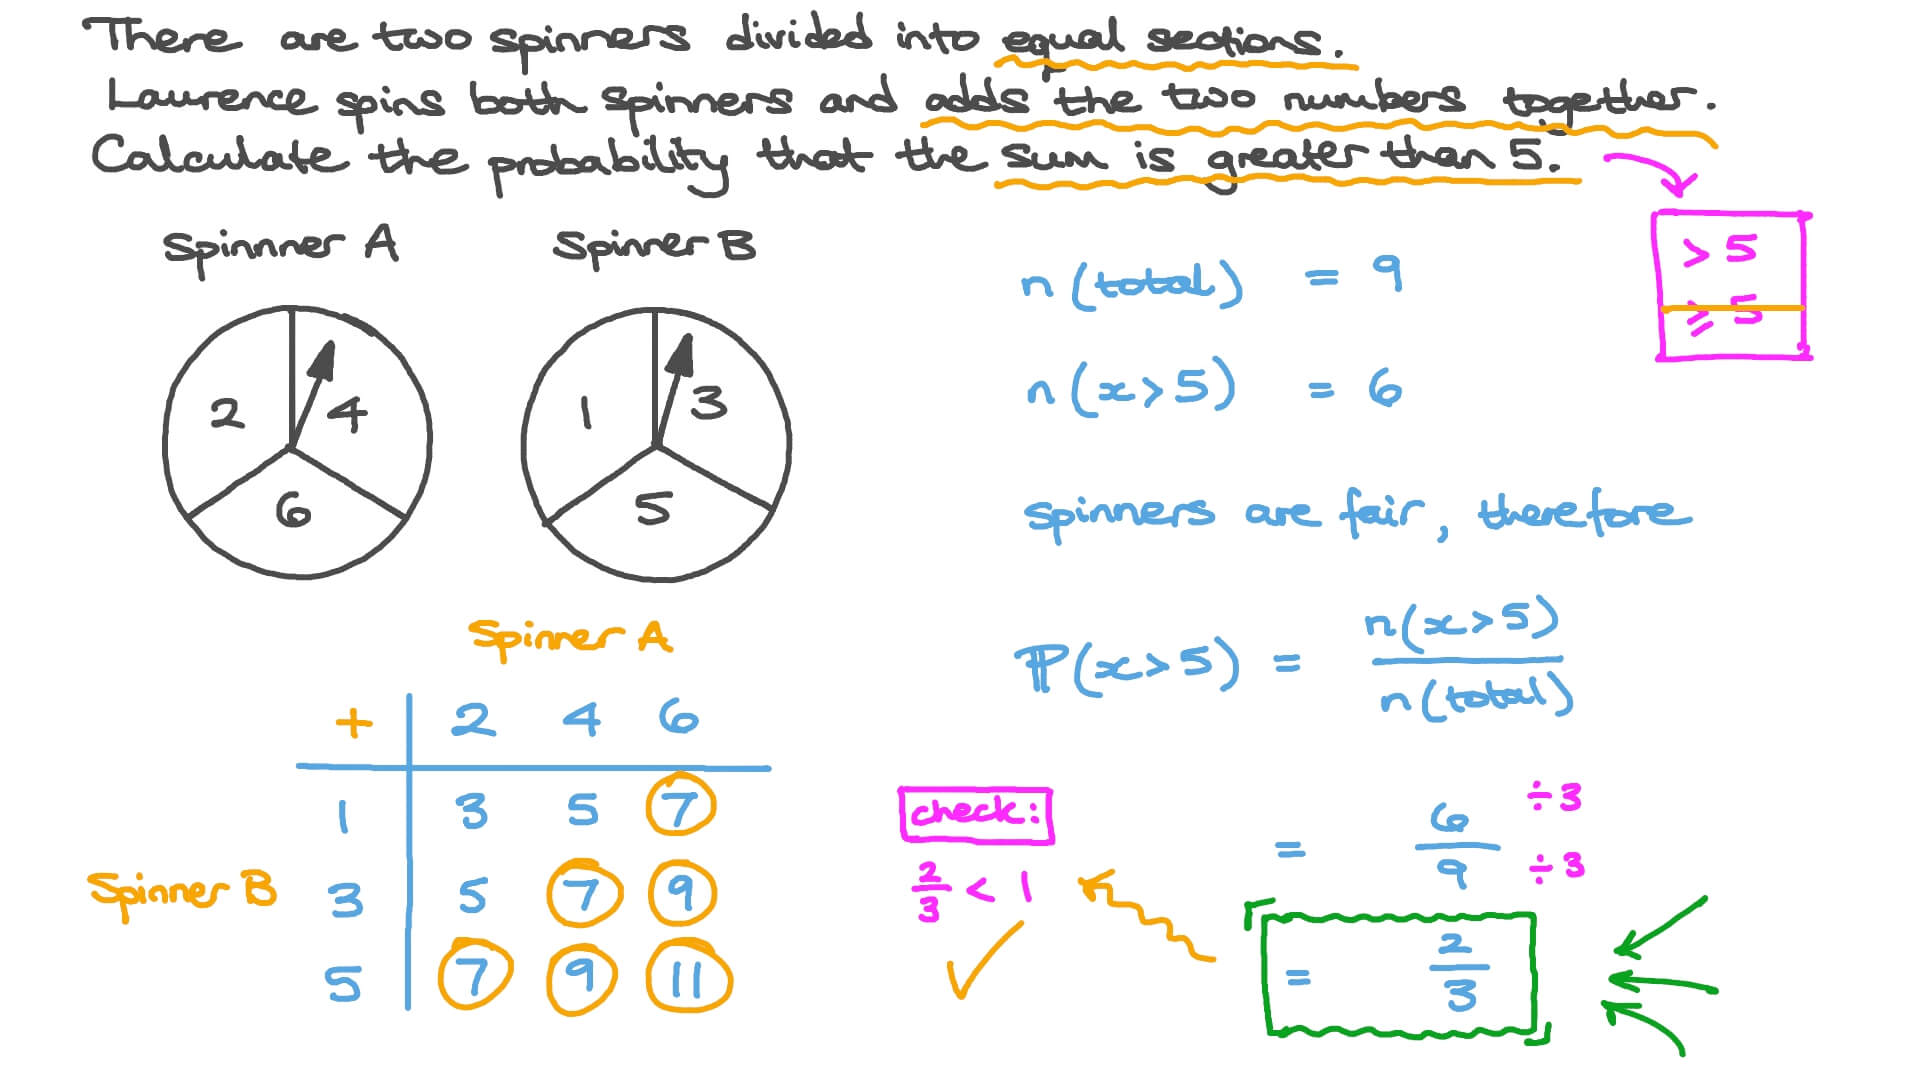 There are two spinners divided into equal sections.
Laurence spins both spinners and adds the two numbers together.
Calculate the probability that the sum is greater than 5.
> 5
≥ 5
Spinnner A
2
4
6
Spinner B
1
3
5
n (total) = 9
n (x > 5) = 6
spinners are fair, therefore
ℙ(x > 5) = n(x > 5) / n(total)
= 6/9 ÷3 ÷3
= 2/3
check:
2/3 < 1
Spinner A
+ 2 4 6
1 3 5 7
Spinner B 3 5 7 9
5 7 9 11